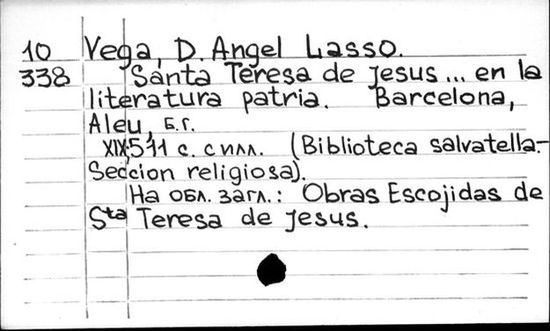 10 Vega, D. Angel Lasso.
338 Santa Teresa de Jesus ... en la
literatura patria. Barcelona,
Aleu, Б.Г.
XIX,511 с. с илл. (Biblioteca salvatella-
Seccion religiosa).
На обл. загл.: Obras Escojidas de
Sta Teresa de Jesus.